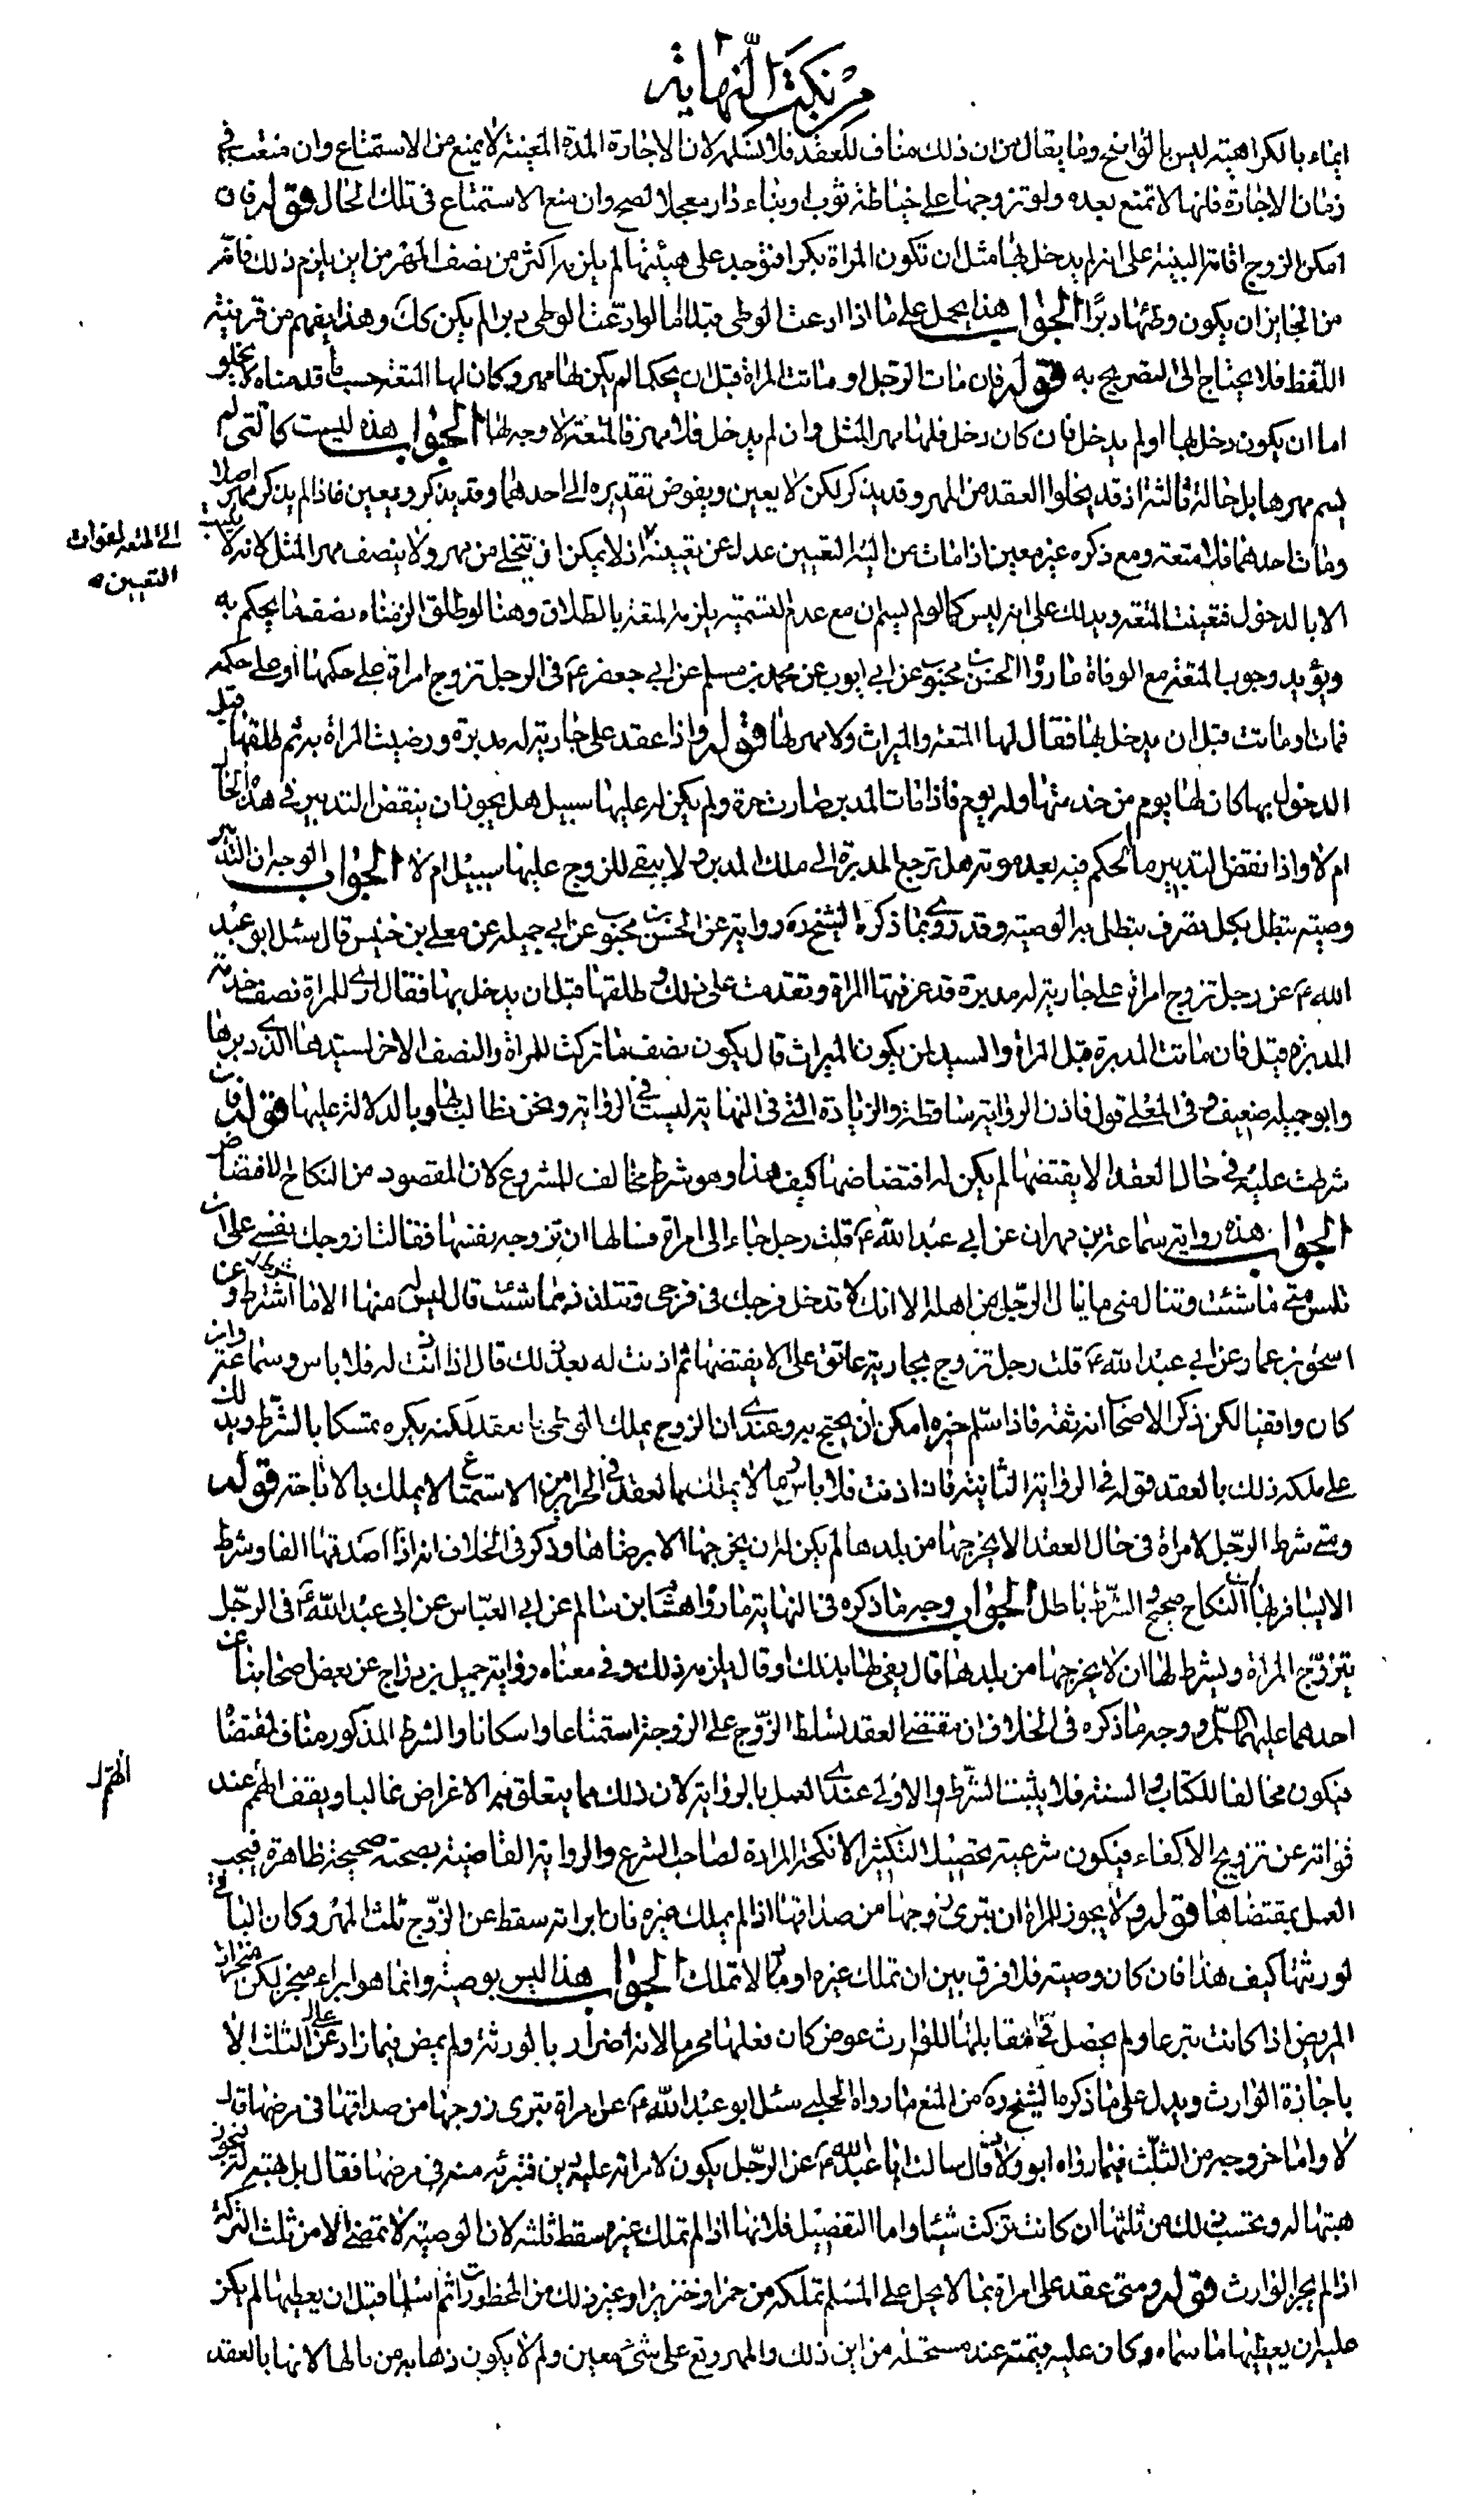 من نكت النهاية
ايماء بالكراهية ليس بالواضح وما يقال من ان ذلك مناف للعقد فلا نسلم لان الاجارة المدة المعينة لا يمنع من الاستمتاع وان منعت في
زمان الاجارة فانها لا تمنع بعده ولو تزوجها على خياطة ثوب او بناء دار معجلا لصح وان منع الاستمتاع في تلك الحال قوله فان
امكن الزوج اقامة البينة على انه لم يدخل بها مثل ان تكون المراة بكرا فتوجد على هيئتها لم يلزمه اكثر من نصف المهر من اين يلزم ذلك فانه
من الجايز ان يكون وطئها دبرًا الجواب هذا يحمل على ما اذا ادعت الوطى قبلا اما لو ادعت الوطى دبرا لم يكن كك وهذا يفهم من قرينة
اللفظ فلا يحتاج الى التصريح به قوله فان مات الرجل او ماتت المراة قبل ان يحكما لم يكن لها مهر وكان لها المتعة حسب ما قدمناه لا يخلو
اما ان يكون دخل بها او لم يدخل فان كان دخل فلها مهر المثل وان لم يدخل فلا مهر فالمتعة لا وجه لها الجواب هذه ليست كالتي لم
يسم مهرها بل حالة ثالثة اذ قد يخلوا العقد من المهر وقد يذكر لكن لا يعين ويفوض تقديره الى احدهما وقد يذكر ويعين فاذا لم يذكر مهر اصلا
ومات احدهما فلا متعة ومع ذكره غير معين اذا مات من اليه التعيين عدل عن تعيينه اذ لا يمكن ان تتخلى من مهر ولا ينصف مهر المثل لانه لا يجب
الى المتعة لفوات
التعيين صح
الا بالدخول فتعينت المتعة ويدلك على انه ليس كما لو لم يسم ان مع عدم التسمية يلزمه المتعة بالطلاق وهنا لو طلق الزمناه نصف ما يحكم به
ويؤيد وجوب المتعة مع الوفاة ما رواه الحسن بن محبوب عن ابي ايوب عن محمد بن مسلم عن ابي جعفر ع في الرجل تزوج امراة على حكمها او على حكمه
فمات او ماتت قبل ان يدخل بها فقال لها المتعة والميراث ولا مهر لها قوله واذا عقد على جارية له مدبرة ورضيت المراة به ثم طلقها قبل
الدخول بها كان لها يوم من خدمتها وله يوم فاذا مات المدبر صارت حرة ولم يكن له عليها سبيل هل يجوز ان ينقض التدبير في هذه الحال
ام لا واذا نقض التدبير ما الحكم فيه بعد موته هل ترجع المدبرة الى ملك المدبر ولا يبقى للزوج عليها سبيل ام لا الجواب الوجه ان التدبير
وصيته تبطل بكل تصرف يبطل به الوصية وقد روى ما ذكره الشيخ ره رواية عن الحسن بن محبوب عن ابي جميلة عن معلى بن خنيس قال سئل ابو عبد
الله ع عن رجل تزوج امراة على جارية له مدبرة قد عرفتها المراة وتقدمت على ذلك وطلقها قبل ان يدخل بها فقال ارى للمراة نصف خدمة
المدبرة قيل فان ماتت المدبرة قبل المراة والسيد لمن يكون الميراث قال يكون نصف ما تركت للمراة والنصف الاخر لسيدها الذي دبرها
وابو جميلة ضعيف وفي المعلى قول فاذن الرواية ساقطة والزيادة التي في النهاية ليست في الرواية ونحن نطالب بها وبالدلالة عليها قوله فان
شرطت عليه في حال العقد الا يفتضها لم يكن له افتضاضها كيف هذا وهو شرط مخالف للمشروع لان المقصود من النكاح الافتضاض
الجواب هذه رواية سماعة بن مهران عن ابي عبد الله ع قلت رجل جاء الى امراة فسالها ان تزوجه بنفسها فقالت ازوجك نفسي على ان
تلمس مني ما شئت وتنال مني ما ينال الرجل من اهله الا انك لا تدخل فرجك في فرجي وتتلذذ بما شئت قال ليس له منها الا ما اشترط وعن
اسحق بن عمار عن ابي عبد الله ع قلت رجل تزوج بجارية عاتق على ان لا يفتضها ثم اذنت له بعد ذلك قال اذا اذنت له فلا باس وسماعة وان
كان واقفيا لكن ذكر الاصحاب انه ثقة فاذا سلم خبره امكن ان يحتج به وعندي ان الزوج يملك الوطى بالعقد لكنه يكره تمسكا بالشرط ويدلك
على ملكه ذلك بالعقد قوله في الرواية الثانية فان اذنت فلا باس وما لا يملك بالعقد في الحراير من الاستمتاع لا يملك بالاباحة قوله
ومتى شرط الرجل لامراة في حال العقد الا يخرجها من بلدها لم يكن له ان يخرجها الا برضاها وذكر في الخلاف انه اذا اصدقها الفا وشرط
الا يسافر بها ان النكاح صحيح والشرط باطل الجواب وجه ما ذكره في النهاية ما رواه هشام بن سالم عن ابي العباس عن ابي عبد الله ع في الرجل
يتزوج المراة ويشرط لها ان لا يخرجها من بلدها قال يفي لها بذلك او قال يلزمه ذلك وفي معناه رواية جميل بن دراج عن بعض اصحابنا عن
احدهما عليهما السلم ووجه ما ذكره في الخلاف ان مقتضى العقد تسلط الزوج على الزوجة استمتاعا واسكانا والشرط المذكور مناف لمقتضاه
فيكون مخالفا للكتاب والسنة فلا يثبت الشرط والاولى عندي العمل بالرواية لان ذلك مما يتعلق فيه الاغراض غالبا ويقف الهمم عند
الهمم
فواته عن تزويج الاكفاء فيكون شرعيته تحصيل التكثير الانكحة المرادة لصاحب الشرع والرواية القاضية بصحته صحيحة ظاهرة فيجب
العمل بمقتضاها قوله ولا يجوز للمراة ان تبرئ زوجها من صداقها اذا لم يملك غيره فان ابراته سقط عن الزوج ثلث المهر وكان الباقي
لورثتها كيف هذا فان كان وصية فلا فرق بين ان تملك غيره او لا تملك الجواب هذا ليس بوصية وانما هو ابراء منجز لكن منجزات
المريض اذا كانت تبرعا ولم يحصل في مقابلتها للوارث عوض كان فعلها محرما لانه اضرار بالورثة ولم يمض فيما زاد عن الثلث الا
باجازة الوارث ويدل على ما ذكره الشيخ ره من المنع ما رواه الحلبي سئل ابو عبد الله ع عن امراة تبرى زوجها من صداقها في مرضها قال
لا واما خروجه من الثلث فيما رواه ابو ولاد قال سالت ابا عبد الله ع عن الرجل يكون لامراته عليه دين فتبرئه منه في مرضها فقال بل تهبه له فيجوز
هبتها له ويحتسب ذلك من ثلثها ان كانت تركت شيئا واما التفصيل فلانها اذا لم تملك غيره سقط ثلثه لان الوصية لا تمضى الا من ثلث التركة
اذا لم يجز الوارث قوله ومتى عقد على امراة بما لا يحل على المسلم تملكه من خمر او خنزير او غير ذلك من المحظورات ثم اسلما قبل ان يعطيها لم يكن
عليه ان يعطيها ما سماه وكان عليه قيمته عند مستحله من اين ذلك والمهر وقع على شئ معين ولم لا يكون ذهابه من مالها لانها بالعقد